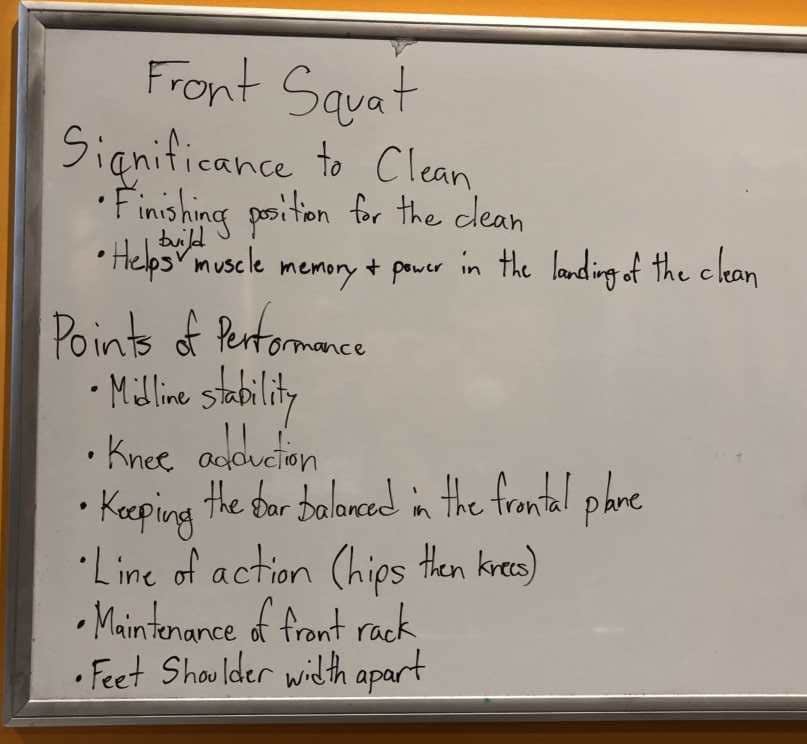 Front Squat
Significance to Clean
• Finishing position for the clean
• Helps build muscle memory + power in the landing of the clean
Points of Performance
• Midline stability
• Knee adduction
• Keeping the bar balanced in the frontal plane
• Line of action (hips then knees)
• Maintenance of front rack
• Feet Shoulder width apart